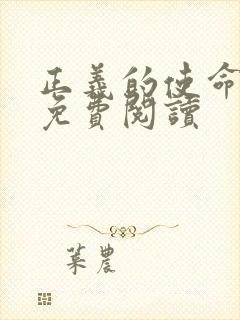 正義的使命
免費閱讀
葉農